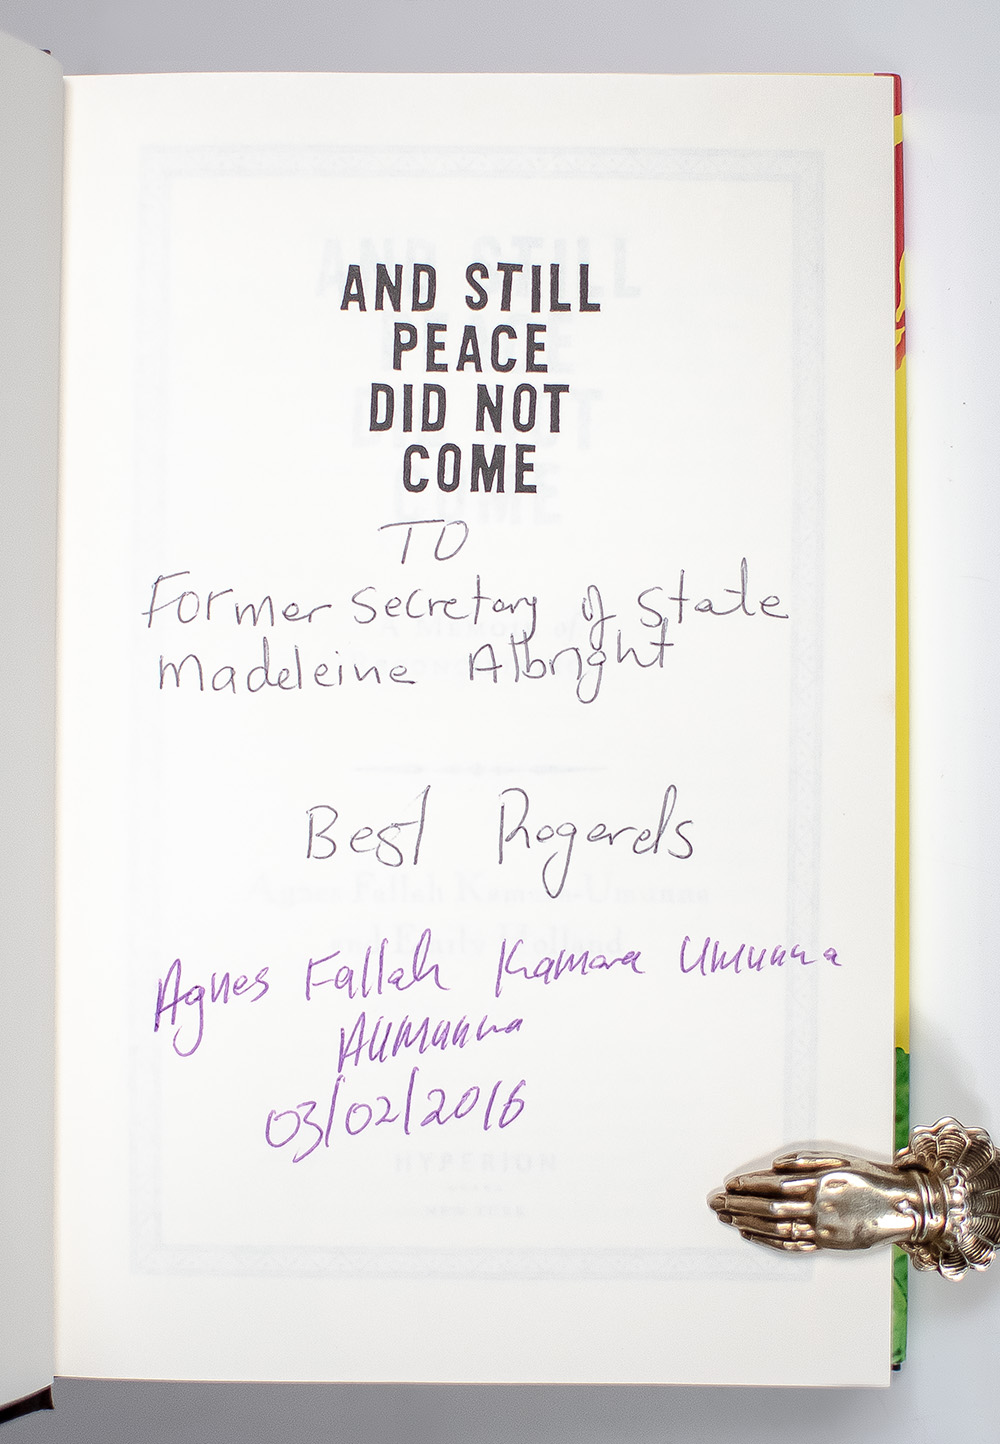 AND STILL
PEACE
DID NOT
COME
TO
Former Secretary of State
Madeleine Albright
Best Rogerds
Agnes Fallah Kamara Umunna
AUmunna
03/02/2016
HYPERION
NEW YORK